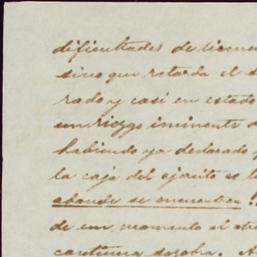 dificultades de
sino que retarda el
rado y casi en estado
un riezgo iminente
habiendo ya declarado
la caja del ejercito es
donde se encuentra
de un momento al otro
continua